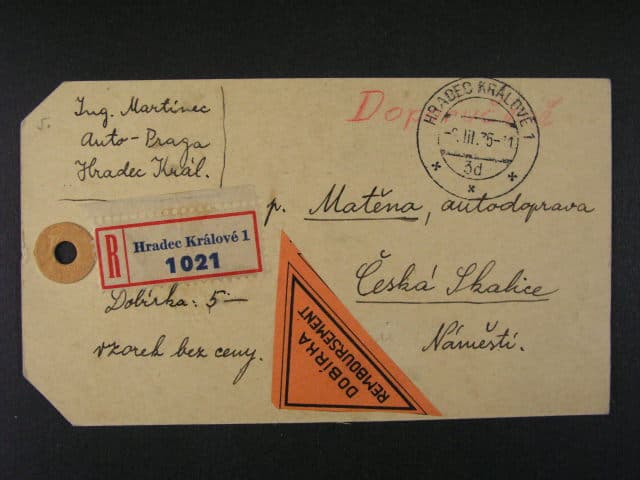 Ing. Martinec
Auto-Praga
Hradec Král.
5.
Doporučeně
HRADEC KRÁLOVÉ 1
III.35-11
3d
R
Hradec Králové 1
1021
p. Matěna, autodoprava
Česká Skalice
Náměstí.
Dobírka: 5—
vzorek bez ceny.
DOBÍRKA
REMBOURSEMENT